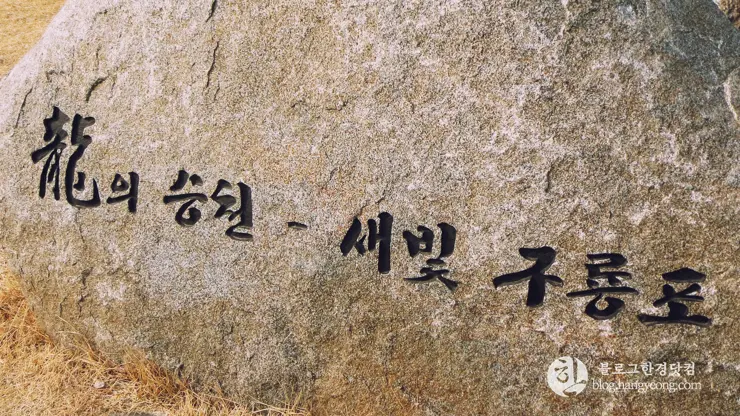 龍의 승천 - 새빛 구룡포
블로그한경닷컴
blog.hangyeong.com